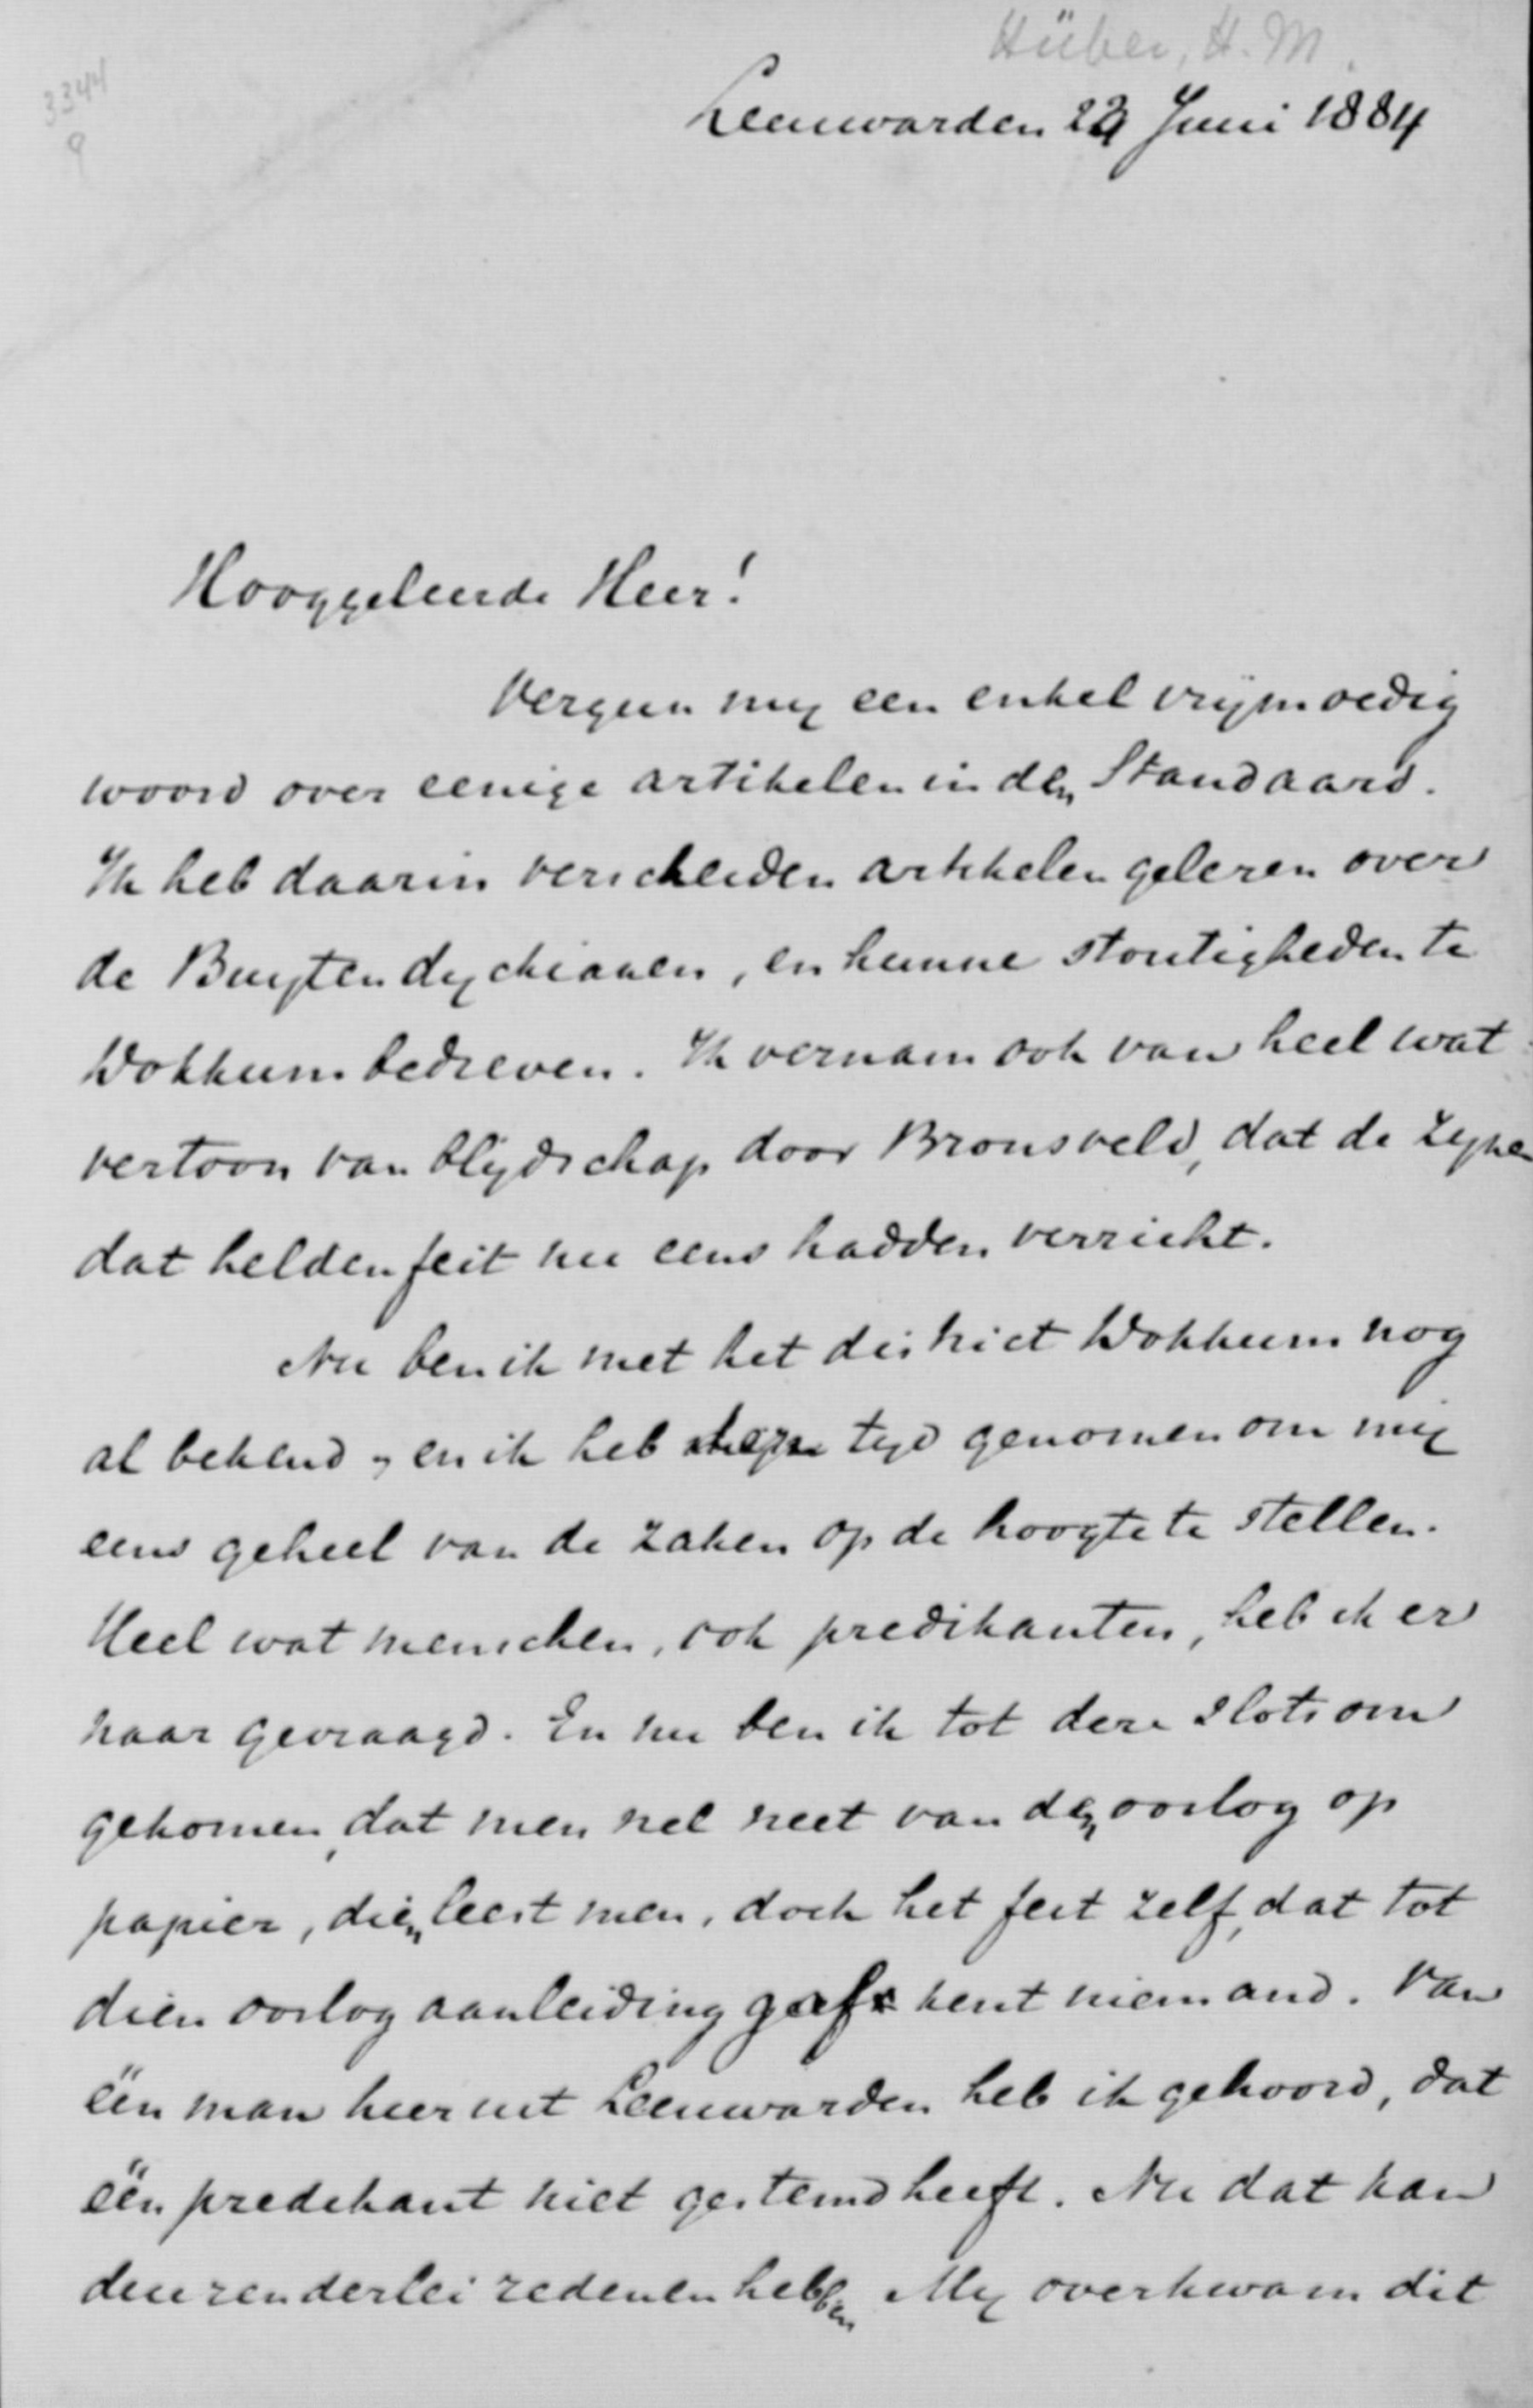 Hüber, H. M.
3344
9
Leeuwarden 29 Juni 1884
Hooggeleerde Heer!
Vergun my een enkel vrijmoedig
woord over eenige artikelen in den Standaard.
Ik heb daarin verscheiden artikelen gelezen over
de Buytendychianen, en hunne stoutigheden te
Dokkum bedreven. Ik vernam ook van heel wat
vertoon van blijdschap door Bronsveld, dat de zyne
dat heldenfeit nu eens hadden verricht.
Nu ben ik met het district Dokkum nog
al bekend, en ik heb tyd genomen om mij
eens geheel van de zaken op de hoogte te stellen.
Heel wat menschen, ook predikanten, heb ik er
naar gevraagd. En nu ben ik tot deze slotsom
gekomen, dat men wel weet van den oorlog op
papier, dien leest men, doch het feit zelf, dat tot
dien oorlog aanleiding gaf kent niemand. Van
één man hier uit Leeuwarden heb ik gehoord, dat
één predikant niet gestemd heeft. Nu dat kan
duizenderlei redenen hebben. My overkwam dit